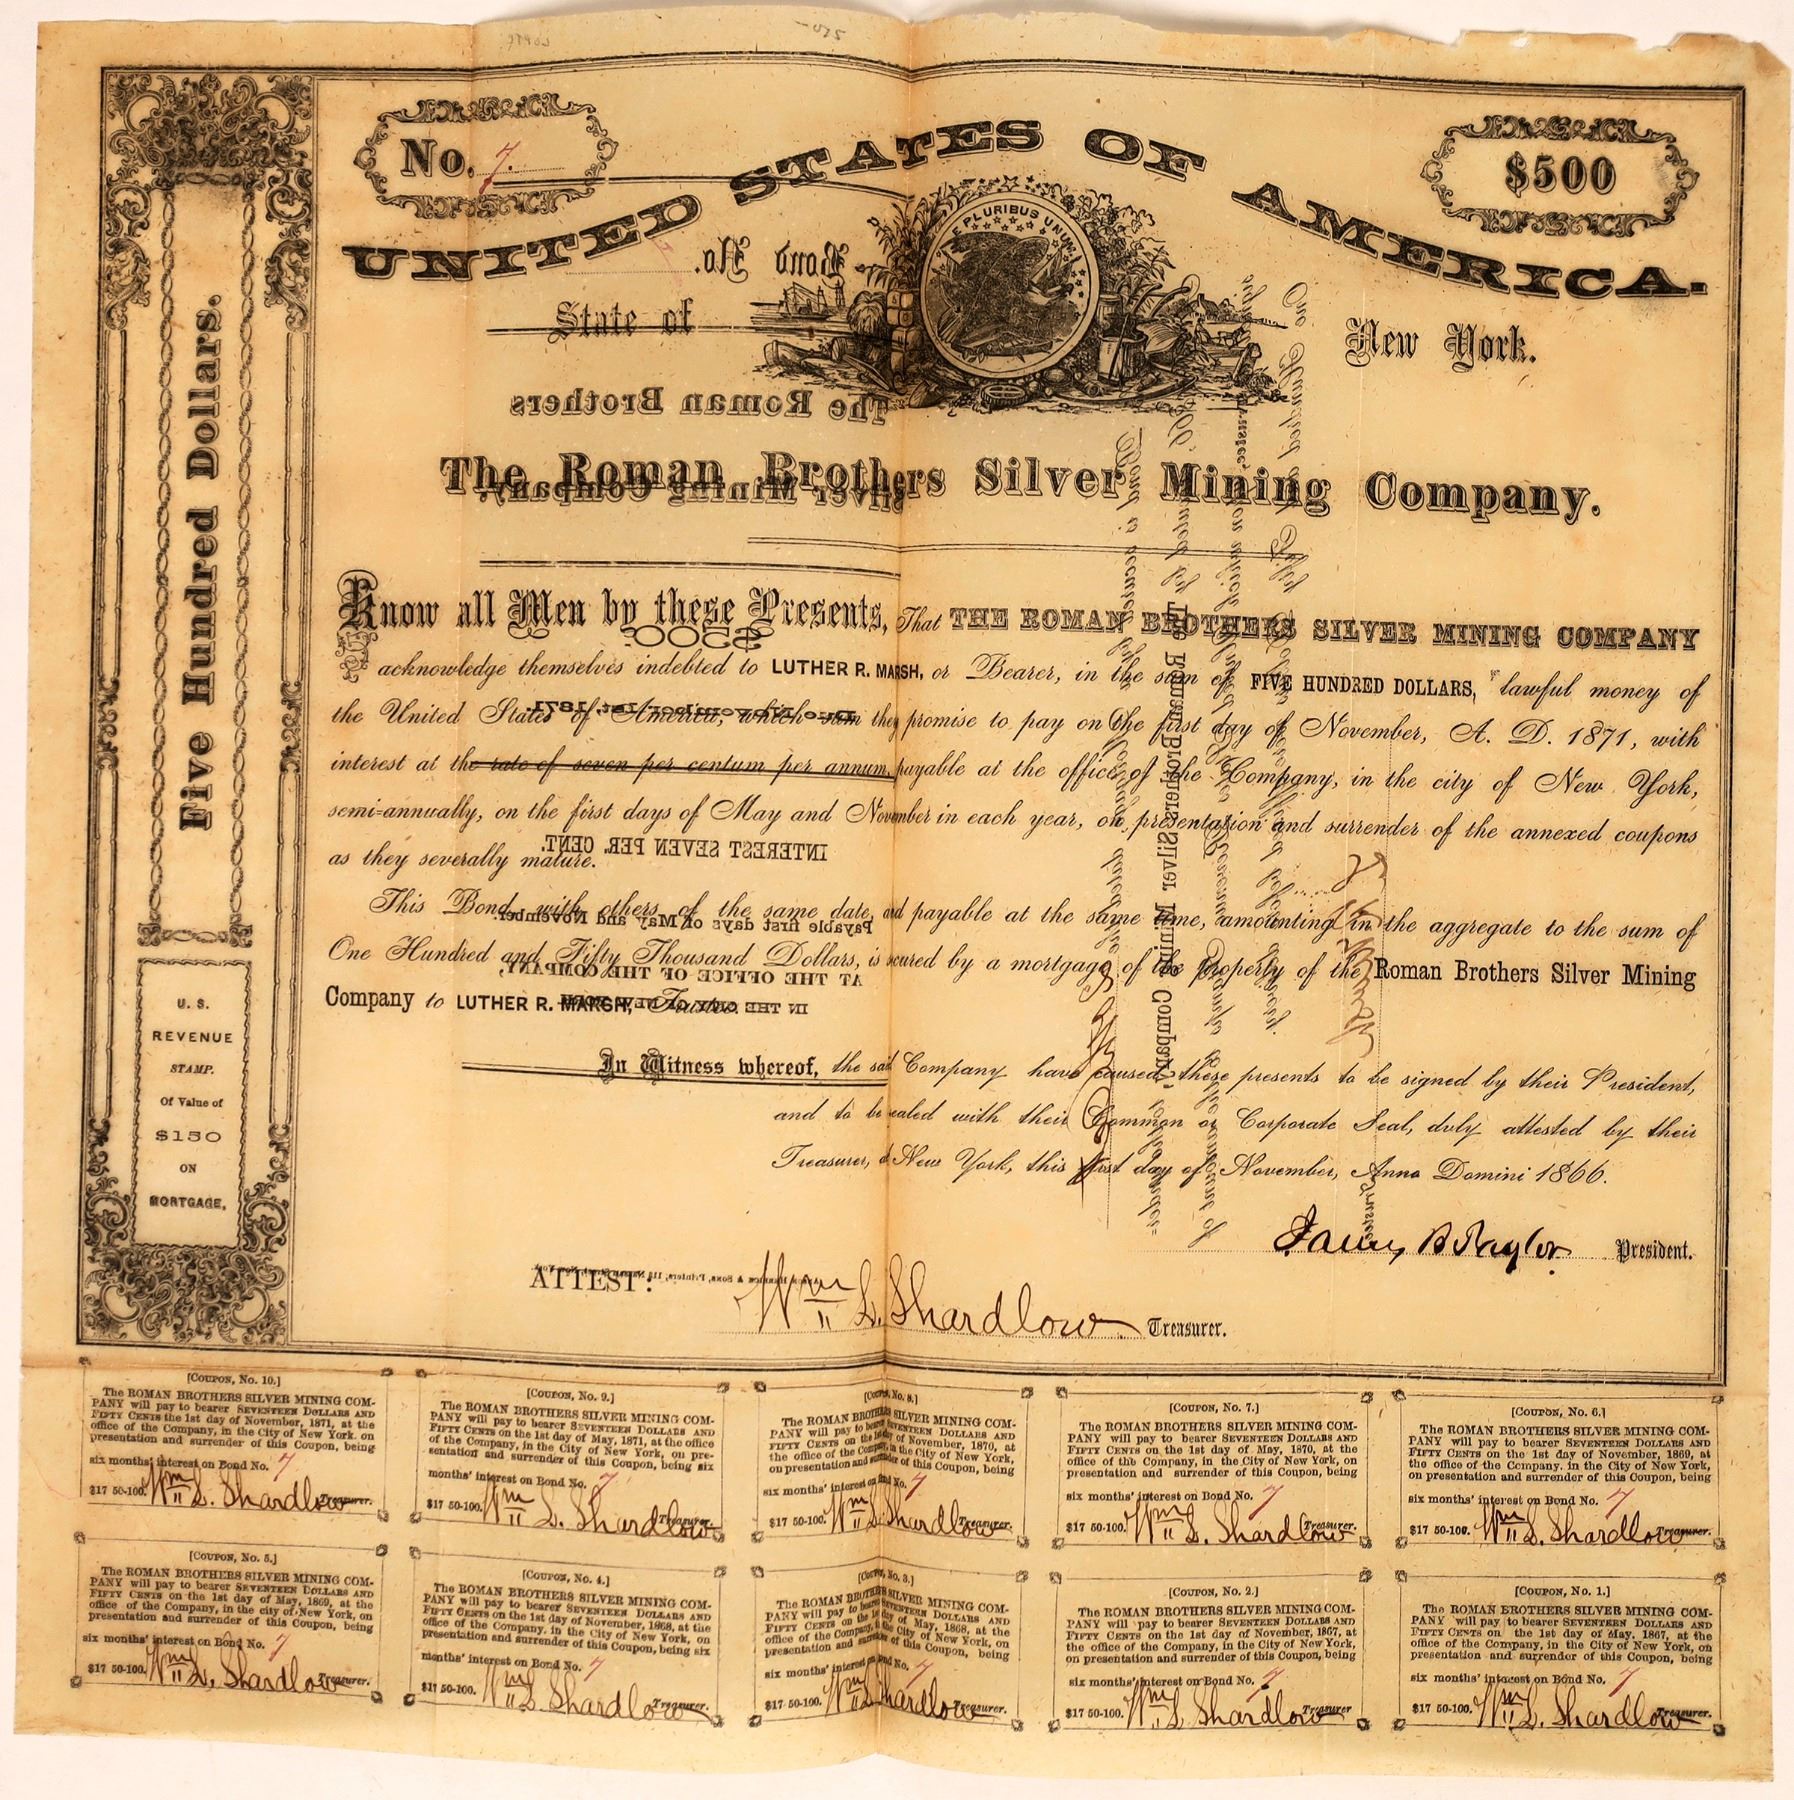 No. 7.
$500
UNITED STATES OF AMERICA.
E PLURIBUS UNUM
State of New York.
The Roman Brothers Silver Mining Company.
Know all Men by these Presents, That THE ROMAN BROTHERS SILVER MINING COMPANY
acknowledge themselves indebted to LUTHER R. MARSH, or Bearer, in the sum of FIVE HUNDRED DOLLARS, lawful money of
the United States of America, which sum they promise to pay on the first day of November, A. D. 1871, with
interest at the rate of seven per centum per annum, payable at the office of the Company, in the city of New York,
semi-annually, on the first days of May and November in each year, on presentation and surrender of the annexed coupons
as they severally mature.
This Bond, with others of the same date, and payable at the same time, amounting in the aggregate to the sum of
One Hundred and Fifty Thousand Dollars, is secured by a mortgage of the property of the Roman Brothers Silver Mining
Company to LUTHER R. MARSH, Trustee.
In Witness whereof, the said Company have caused these presents to be signed by their President,
and to be sealed with their Common or Corporate Seal, duly attested by their
Treasurer, at New York, this first day of November, Anno Domini 1866.
President.
ATTEST: Wm L. Shardlow Treasurer.
Five Hundred Dollars.
U. S.
REVENUE
STAMP.
Of Value of
$150
ON
MORTGAGE,
Bond No.
The Roman Brothers
Silver Mining Company.
$500.
Due November 1st, 1871.
INTEREST SEVEN PER. CENT.
Payable first days of May and November.
AT THE OFFICE OF THE COMPANY,
IN THE CITY OF NEW YORK
[COUPON, No. 10.]
The ROMAN BROTHERS SILVER MINING COM-
PANY will pay to bearer SEVENTEEN DOLLARS AND
FIFTY CENTS the 1st day of November, 1871, at the
office of the Company, in the City of New York, on
presentation and surrender of this Coupon, being
six months' interest on Bond No. 7
$17 50-100. Wm L. Shardlow Treasurer.
[COUPON, No. 9.]
The ROMAN BROTHERS SILVER MINING COM-
PANY will pay to bearer SEVENTEEN DOLLARS AND
FIFTY CENTS on the 1st day of May, 1871, at the office
of the Company, in the City of New York, on pre-
sentation and surrender of this Coupon, being six
months' interest on Bond No. 7
$17 50-100. Wm L. Shardlow Treasurer.
[COUPON, No. 8.]
The ROMAN BROTHERS SILVER MINING COM-
PANY will pay to bearer SEVENTEEN DOLLARS AND
FIFTY CENTS on the 1st day of November, 1870, at
the office of the Company, in the City of New York,
on presentation and surrender of this Coupon, being
six months' interest on Bond No. 7
$17 50-100. Wm L. Shardlow Treasurer.
[COUPON, No. 7.]
The ROMAN BROTHERS SILVER MINING COM-
PANY will pay to bearer SEVENTEEN DOLLARS AND
FIFTY CENTS on the 1st day of May, 1870, at the
office of the Company, in the City of New York, on
presentation and surrender of this Coupon, being
six months' interest on Bond No. 7
$17 50-100. Wm L. Shardlow Treasurer.
[COUPON, No. 6.]
The ROMAN BROTHERS SILVER MINING COM-
PANY will pay to bearer SEVENTEEN DOLLARS AND
FIFTY CENTS on the 1st day of November, 1869, at
the office of the Company, in the City of New York,
on presentation and surrender of this Coupon, being
six months' interest on Bond No. 7
$17 50-100. Wm L. Shardlow Treasurer.
[COUPON, No. 5.]
The ROMAN BROTHERS SILVER MINING COM-
PANY will pay to bearer SEVENTEEN DOLLARS AND
FIFTY CENTS on the 1st day of May, 1869, at the
office of the Company, in the city of New York, on
presentation and surrender of this Coupon, being
six months' interest on Bond No. 7
$17 50-100. Wm L. Shardlow Treasurer.
[COUPON, No. 4.]
The ROMAN BROTHERS SILVER MINING COM-
PANY will pay to bearer SEVENTEEN DOLLARS AND
FIFTY CENTS on the 1st day of November, 1868, at the
office of the Company, in the City of New York, on
presentation and surrender of this Coupon, being six
months' interest on Bond No. 7
$17 50-100. Wm L. Shardlow Treasurer.
[COUPON, No. 3.]
The ROMAN BROTHERS SILVER MINING COM-
PANY will pay to bearer SEVENTEEN DOLLARS AND
FIFTY CENTS on the 1st day of May, 1868, at the
office of the Company, in the City of New York, on
presentation and surrender of this Coupon, being
six months' interest on Bond No. 7
$17 50-100. Wm L. Shardlow Treasurer.
[COUPON, No. 2.]
The ROMAN BROTHERS SILVER MINING COM-
PANY will pay to bearer SEVENTEEN DOLLARS AND
FIFTY CENTS on the 1st day of November, 1867, at
the office of the Company, in the City of New York,
on presentation and surrender of this Coupon, being
six months' interest on Bond No. 7
$17 50-100. Wm L. Shardlow Treasurer.
[COUPON, No. 1.]
The ROMAN BROTHERS SILVER MINING COM-
PANY will pay to bearer SEVENTEEN DOLLARS AND
FIFTY CENTS on the 1st day of May, 1867, at the
office of the Company, in the City of New York, on
presentation and surrender of this Coupon, being
six months' interest on Bond No. 7
$17 50-100. Wm L. Shardlow Treasurer.